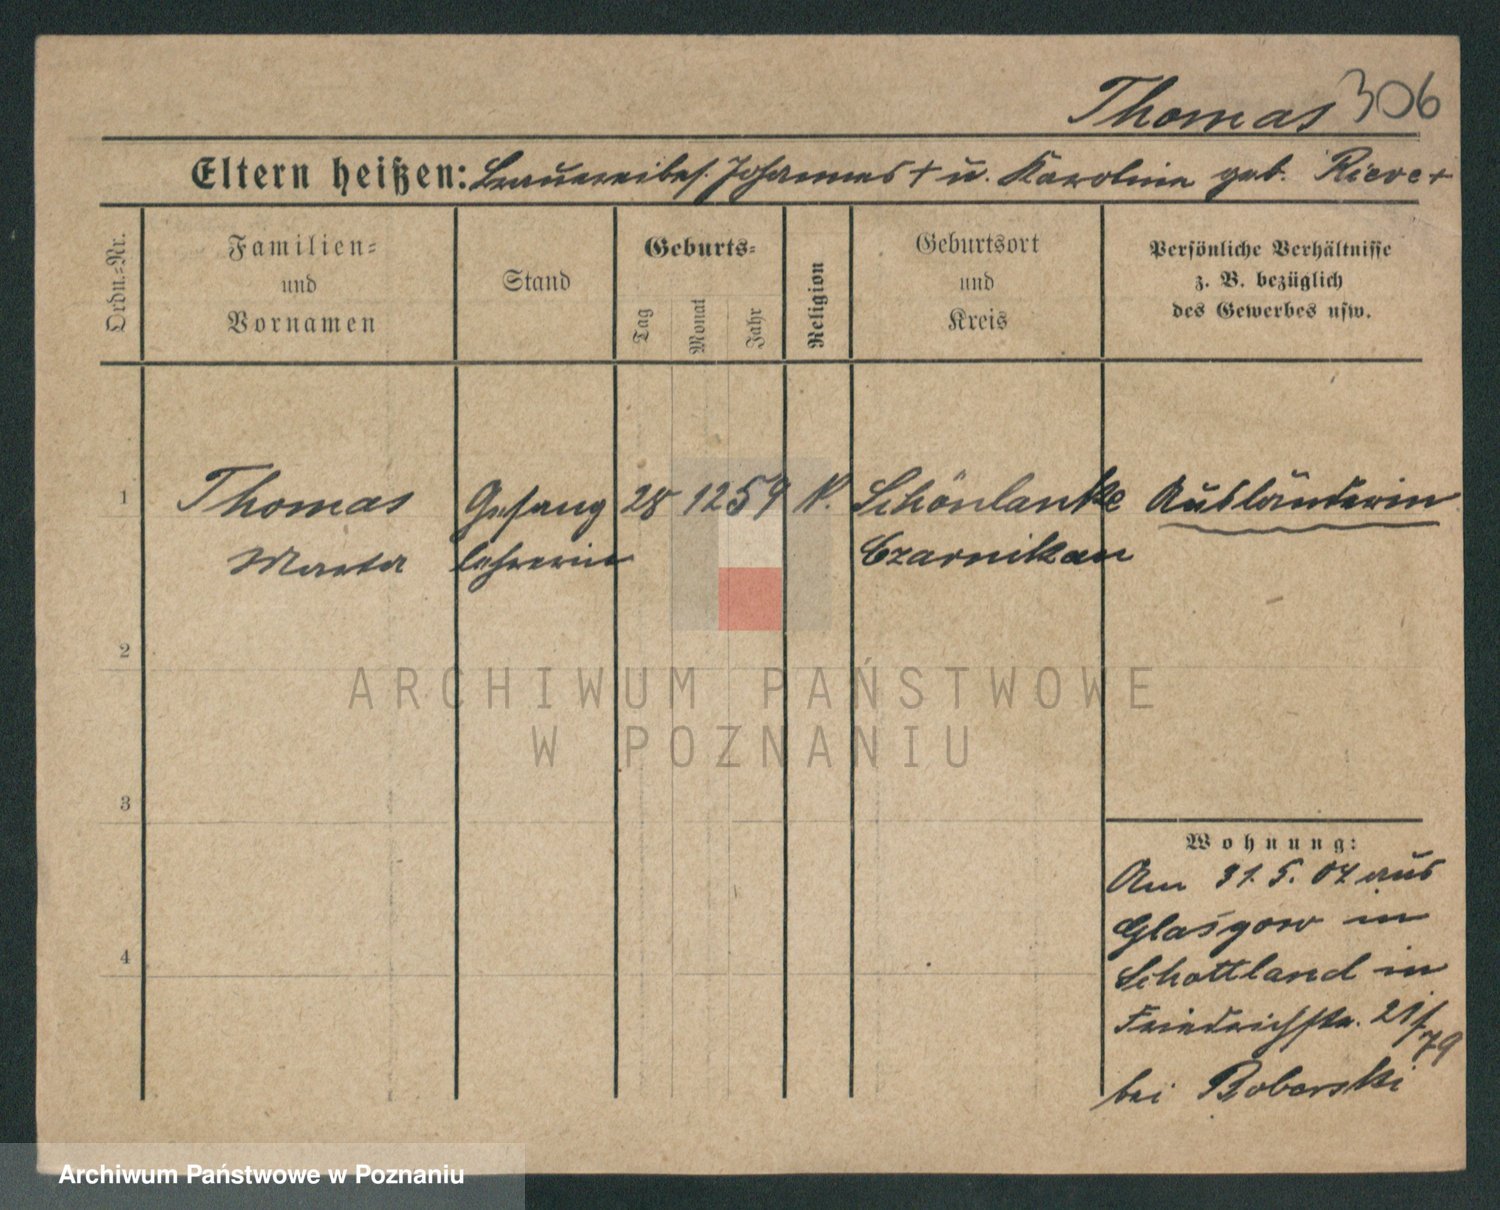 Thomas 306
Eltern heißen: Brauereibes. Johannes + u. Karoline geb. +
Ordn.-Nr.
Familien-
und
Vornamen
Stand
Geburts-
Tag
Monat
Jahr
Religion
Geburtsort
und
Kreis
Persönliche Verhältnisse
z. B. bezüglich
des Gewerbes usw.
1 Thomas Gesang 28 12 K. Schönlanke Ausländerin
Marta lehrerin Czarnikau
2
ARCHIWUM PAŃSTWOWE
W POZNANIU
3
Wohnung:
Am 31. 5. 07 aus
Glasgow in
Schottland in
Friedrichstr. 21/
79
bei Boberski
4
Archiwum Państwowe w Poznaniu